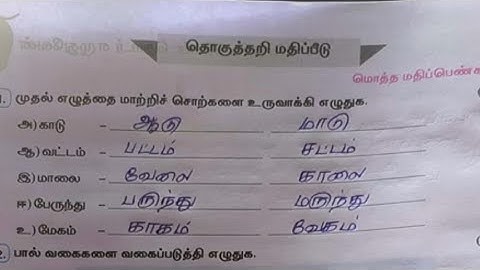 தொகுத்தறி மதிப்பீடு
மொத்த மதிப்பெண்க
1. முதல் எழுத்தை மாற்றிச் சொற்களை உருவாக்கி எழுதுக.
அ) காடு - ஆடு மாடு
ஆ) வட்டம் - பட்டம் சட்டம்
இ) மாலை - வேலை காலை
ஈ) பேருந்து - பருந்து மருந்து
உ) மேகம் - காகம் வேகம்
2. பால் வகைகளை வகைப்படுத்தி எழுதுக.